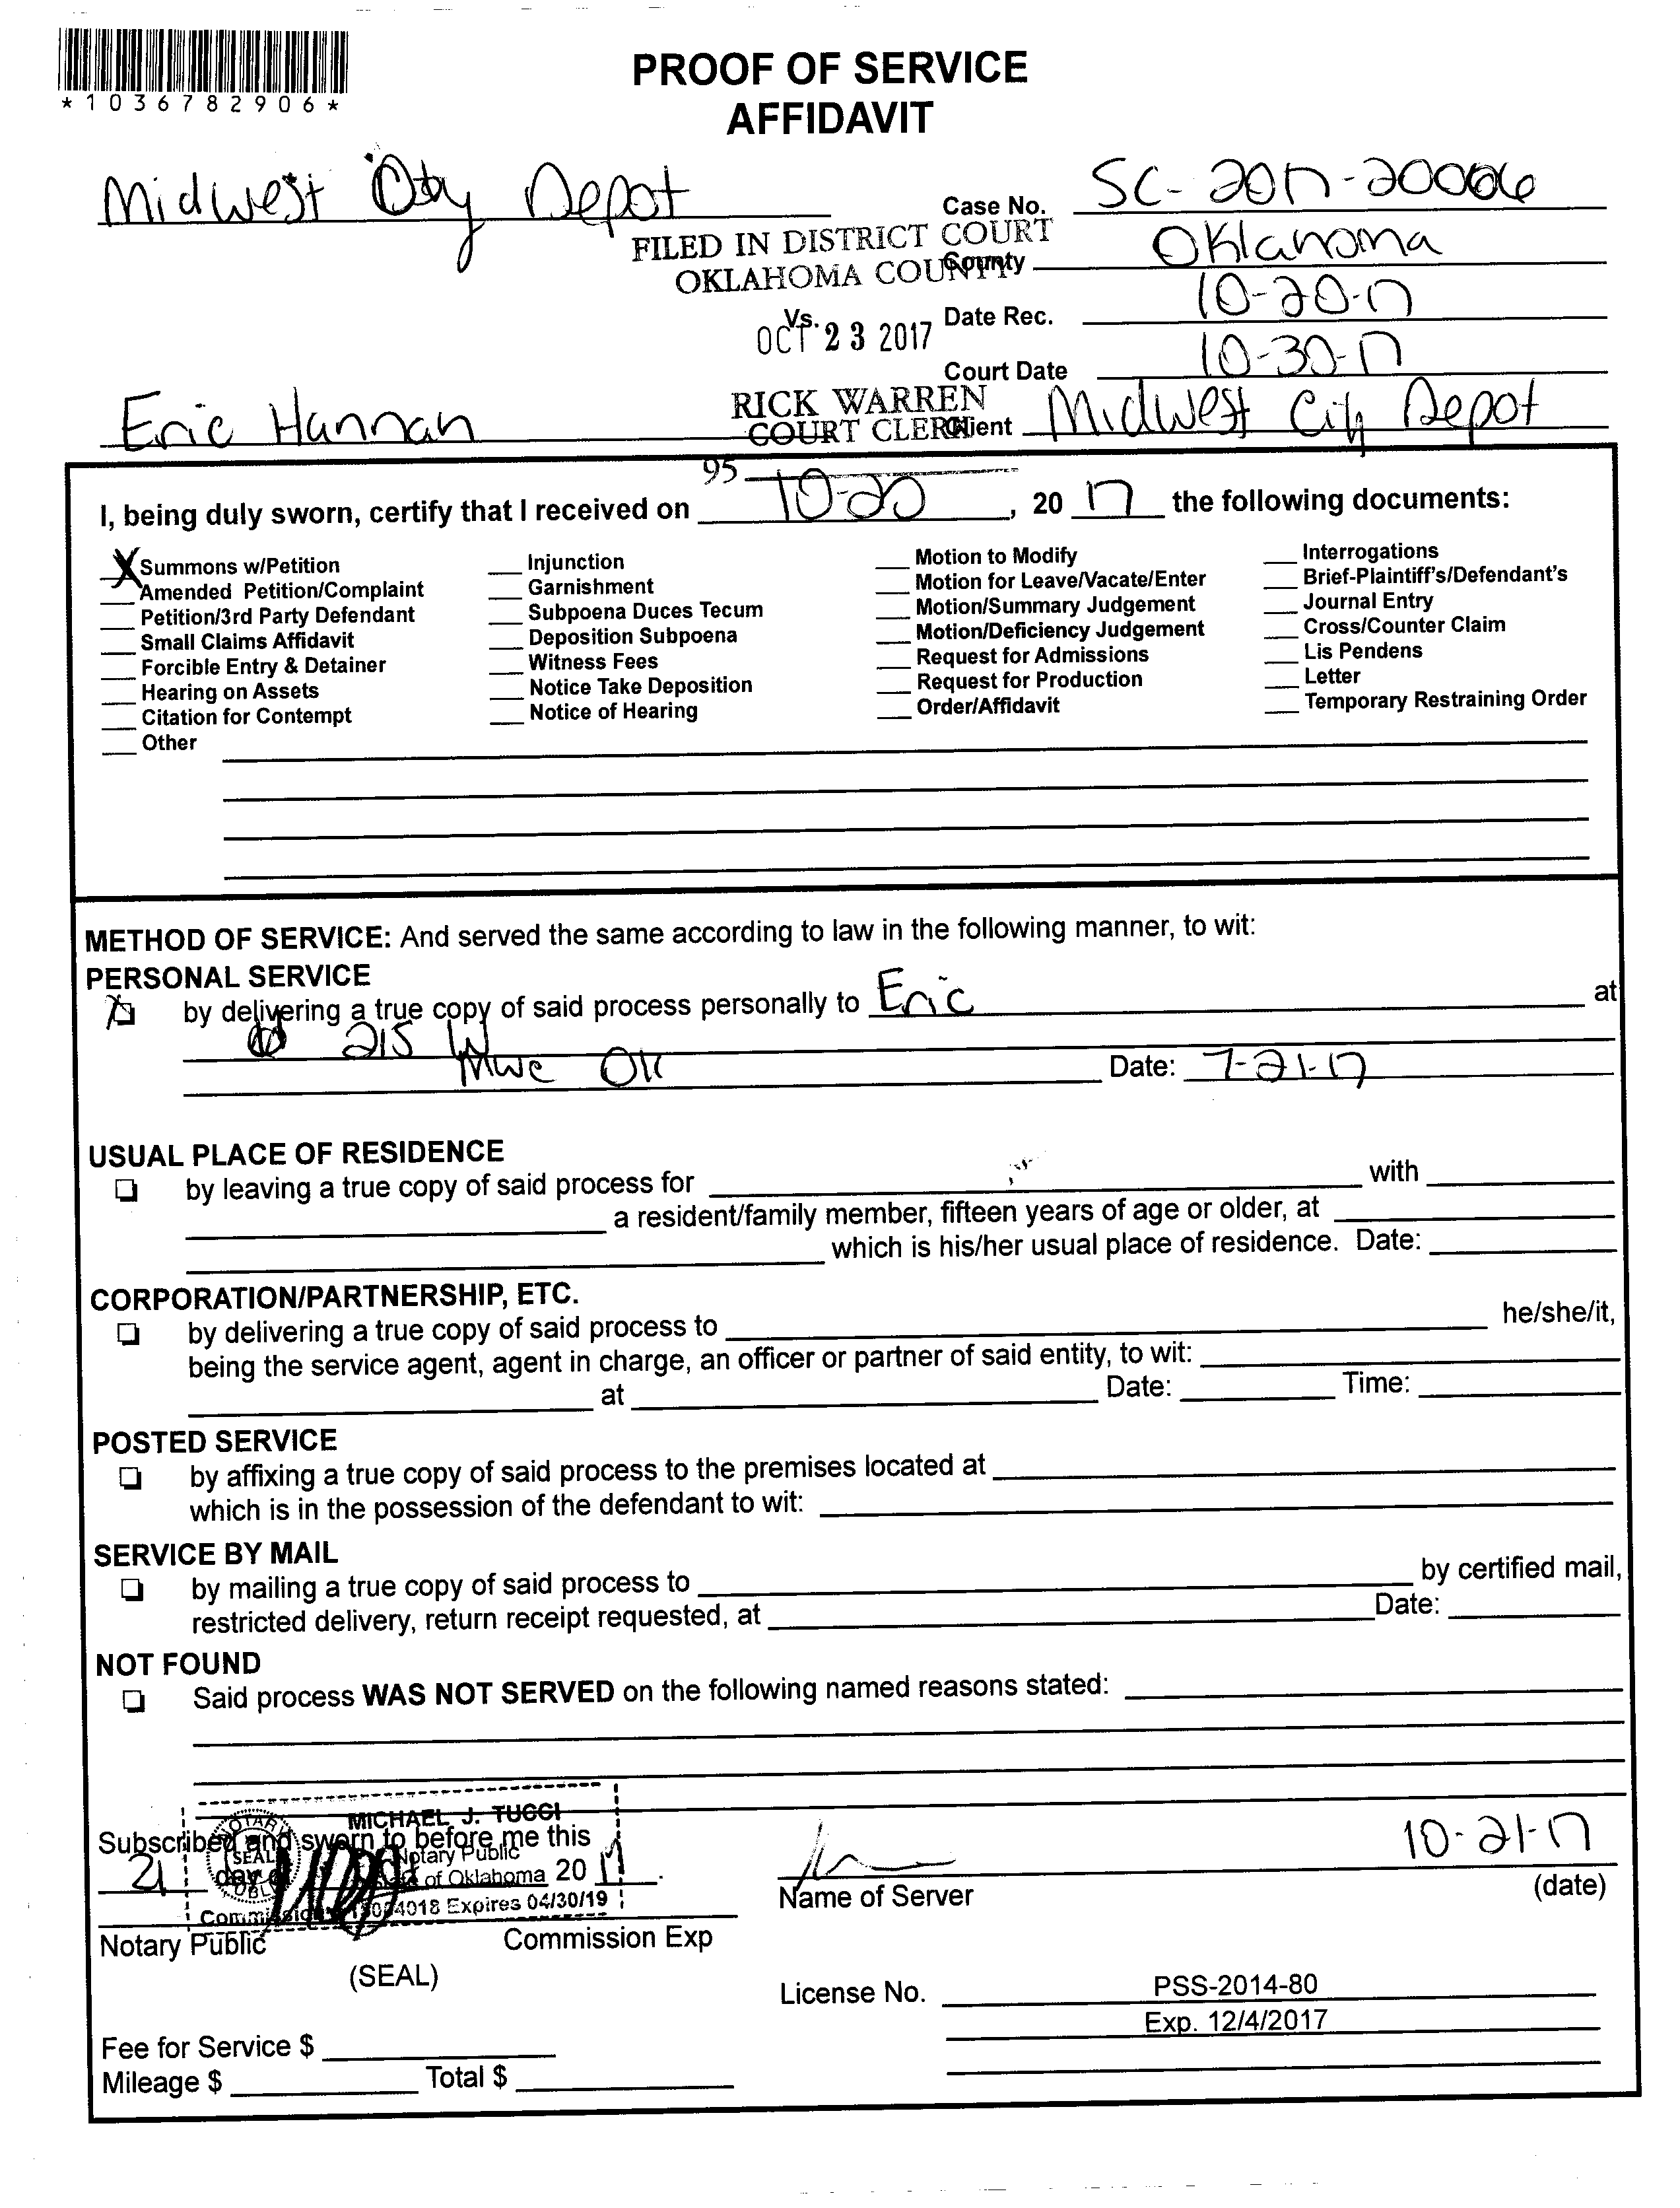 *1036782906*
PROOF OF SERVICE
AFFIDAVIT
Midwest City Depot
Case No. SC-2017-20006
FILED IN DISTRICT COURT
OKLAHOMA COUNTY
County Oklahoma
Vs.
OCT 23 2017
Date Rec. 10-20-17
Court Date 10-30-17
RICK WARREN
COURT CLERK
Eric Hannan
Client Midwest City Depot
95
I, being duly sworn, certify that I received on 10-20, 20 17 the following documents:
X Summons w/Petition
Amended Petition/Complaint
Petition/3rd Party Defendant
Small Claims Affidavit
Forcible Entry & Detainer
Hearing on Assets
Citation for Contempt
Other
Injunction
Garnishment
Subpoena Duces Tecum
Deposition Subpoena
Witness Fees
Notice Take Deposition
Notice of Hearing
Motion to Modify
Motion for Leave/Vacate/Enter
Motion/Summary Judgement
Motion/Deficiency Judgement
Request for Admissions
Request for Production
Order/Affidavit
Interrogations
Brief-Plaintiff's/Defendant's
Journal Entry
Cross/Counter Claim
Lis Pendens
Letter
Temporary Restraining Order
METHOD OF SERVICE: And served the same according to law in the following manner, to wit:
PERSONAL SERVICE
X by delivering a true copy of said process personally to Eric at
215 W
MWC OK Date: 7-21-17
USUAL PLACE OF RESIDENCE
by leaving a true copy of said process for with
a resident/family member, fifteen years of age or older, at
which is his/her usual place of residence. Date:
CORPORATION/PARTNERSHIP, ETC.
by delivering a true copy of said process to he/she/it,
being the service agent, agent in charge, an officer or partner of said entity, to wit:
at Date: Time:
POSTED SERVICE
by affixing a true copy of said process to the premises located at
which is in the possession of the defendant to wit:
SERVICE BY MAIL
by mailing a true copy of said process to by certified mail,
restricted delivery, return receipt requested, at Date:
NOT FOUND
Said process WAS NOT SERVED on the following named reasons stated:
MICHAEL J. TUCCI
Notary Public
State of Oklahoma
Expires 04/30/19
NOTARY
SEAL
Subscribed and sworn to before me this
21 day of 20 17.
10-21-17
Name of Server
(date)
Notary Public Commission Exp
(SEAL)
License No. PSS-2014-80
Exp. 12/4/2017
Fee for Service $
Mileage $ Total $